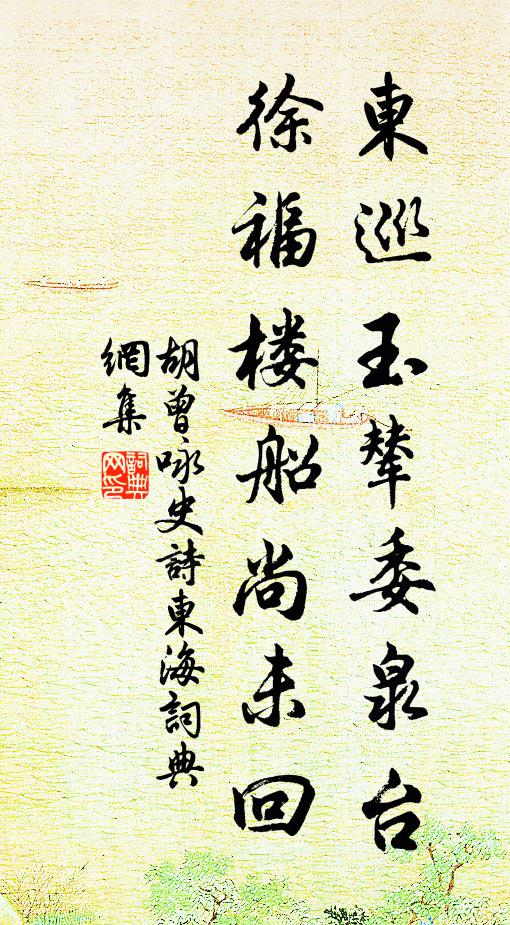 東巡玉輦委泉台
徐福楼船尚未回
胡曾咏史詩東海詞典
網集
詞典网印